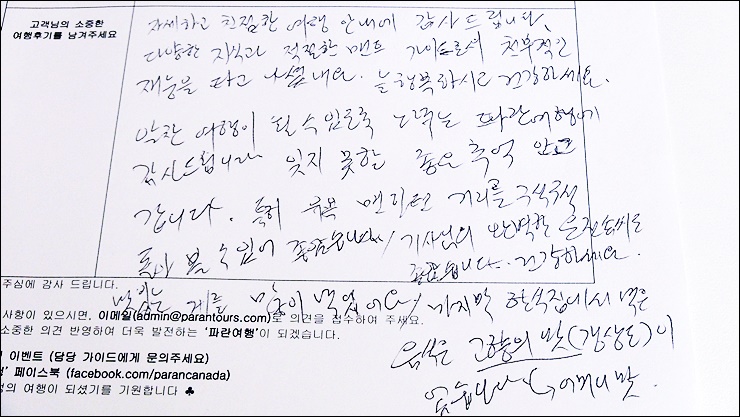 고객님의 소중한
여행후기를 남겨주세요
자세하고 친절한 여행 안내에 감사드립니다.
다양한 지식과 적절한 멘트 가이드로서 천부적인
재능을 타고 나셨네요. 늘 행복하시고 건강하세요.
알찬 여행이 될 수 있도록 해주는 파란여행에
감사드립니다 잊지 못할 좋은 추억 안고
갑니다. 특히 거리를 구석구석
돌아 볼 수 있어 좋았습니다 / 기사님의 완벽한 운전솜씨도
좋았습니다. 건강하세요.
주심에 감사 드립니다.
게를 많이 먹었어요 / 마지막 한식집에서 먹은
사항이 있으시면, 이메일(admin@parantours.com)로 의견을 접수하여 주세요.
소중한 의견 반영하여 더욱 발전하는 '파란여행'이 되겠습니다.
음식은 고향의 맛(경상도)이
이벤트 (담당 가이드에게 문의주세요)
페이스북 (facebook.com/parancanada)
었습니다 어머니 맛.
의 여행이 되셨기를 기원합니다 ♣